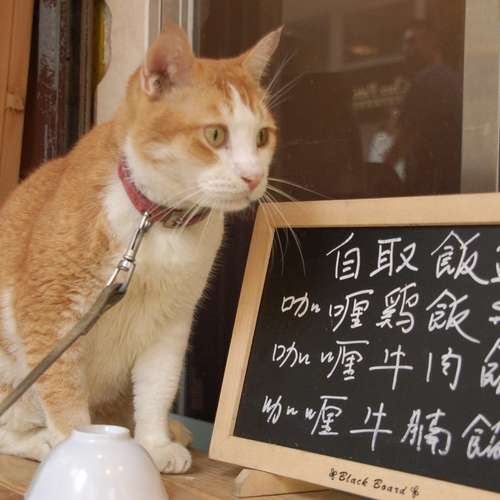 自取飯
咖喱雞飯
咖喱牛肉飯
咖喱牛腩飯
Black Board